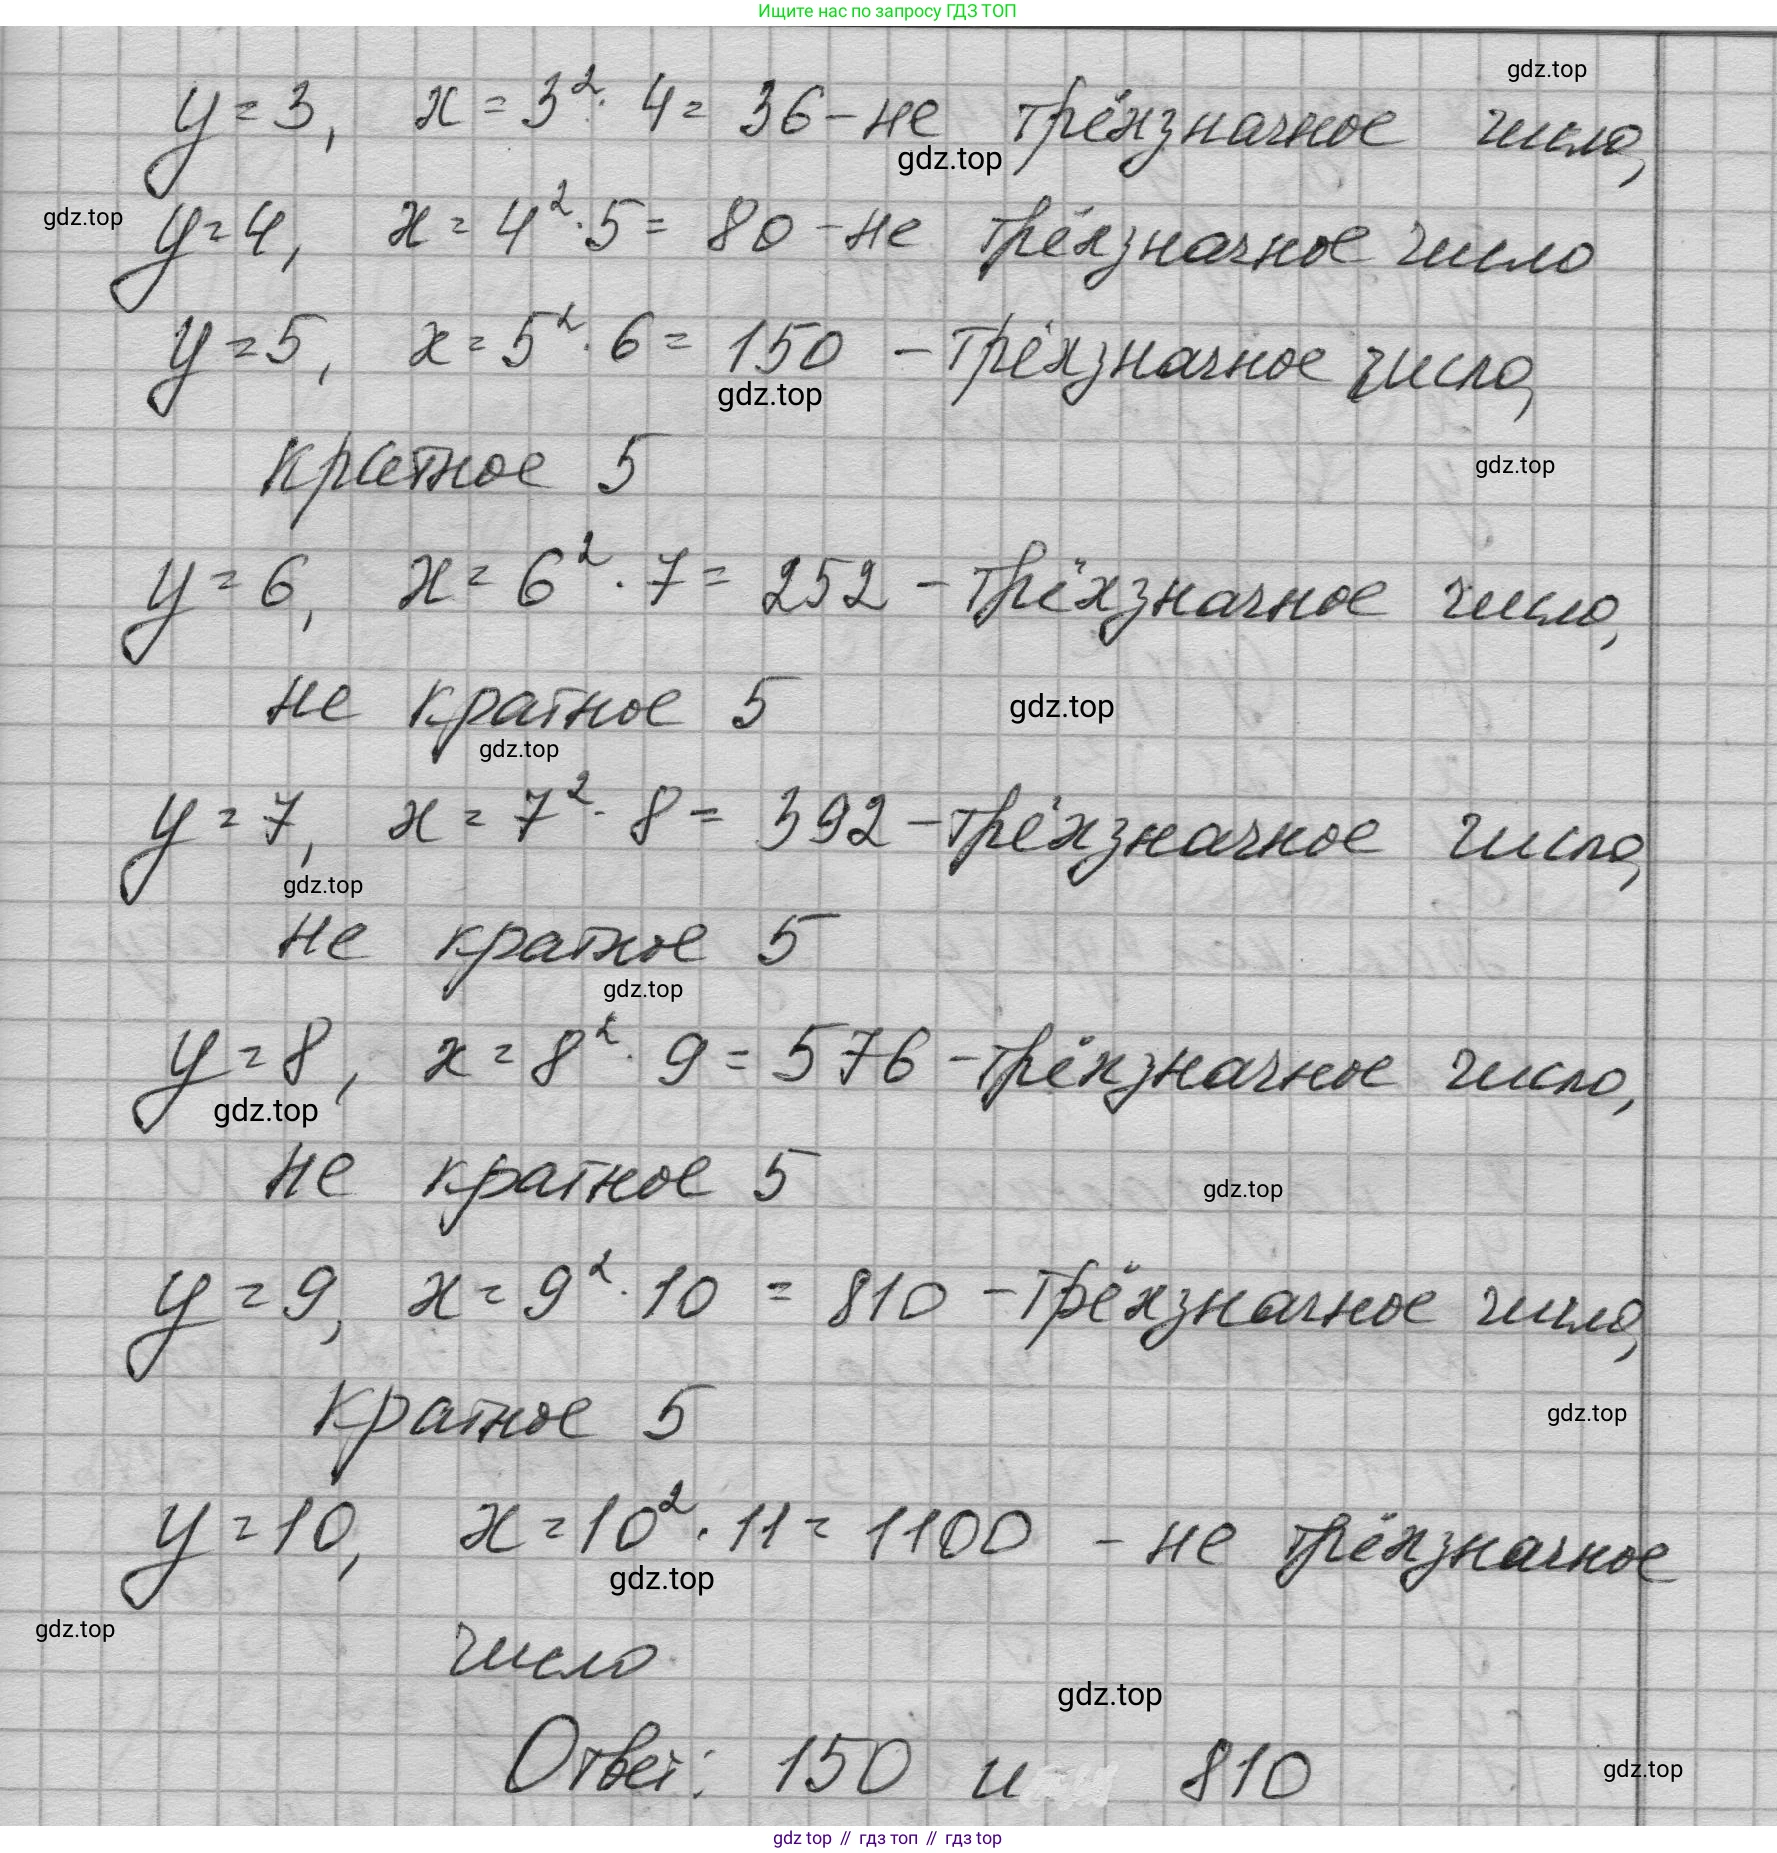 Ищите нас по запросу ГДЗ ТОП
gdz.top
y = 3, x = 3² · 4 = 36 – не трёхзначное число,
gdz.top
gdz.top
y = 4, x = 4² · 5 = 80 – не трёхзначное число
y = 5, x = 5² · 6 = 150 – трёхзначное число,
gdz.top
кратное 5
gdz.top
y = 6, x = 6² · 7 = 252 – трёхзначное число,
не кратное 5
gdz.top
gdz.top
y = 7, x = 7² · 8 = 392 – трёхзначное число,
gdz.top
не кратное 5
gdz.top
y = 8, x = 8² · 9 = 576 – трёхзначное число,
gdz.top
не кратное 5
gdz.top
y = 9, x = 9² · 10 = 810 – трёхзначное число,
кратное 5
gdz.top
y = 10, x = 10² · 11 = 1100 – не трёхзначное
gdz.top
gdz.top
число
gdz.top
Ответ: 150 и 810
gdz.top
gdz top // гдз топ // гдз top